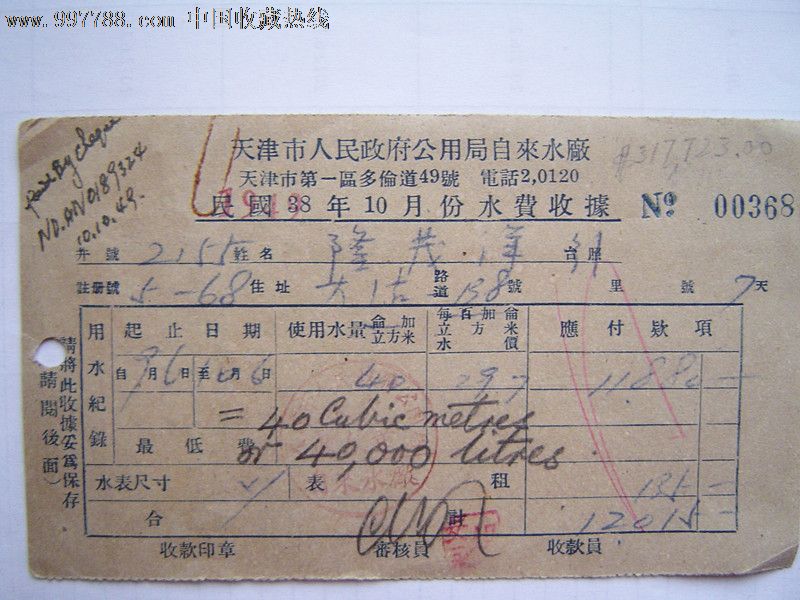 www.997788.com 中国收藏热线
Paid By cheque
NO.AN0189324
10.10.49.
天津市人民政府公用局自來水廠
$317,723.00
天津市第一區多倫道49號 電話2,0120
民國38年10月份水費收據 No 00368
井號 2155 姓名 隆茂洋行 台照
註册號 5-68 住址 大沽路道 158 號 里 號 7天
用水紀錄 起止日期 使用水量 侖加立方米 每百加侖立方米水價 應付欵項
自 9月6日至10月6日 40 297 11880—
= 40 Cubic metres
最低費 or 40,000 litres.
水表尺寸 表租 135—
合計 12015—
收款印章 審核員 收款員
請將此收據妥爲保存
（請閱後面）